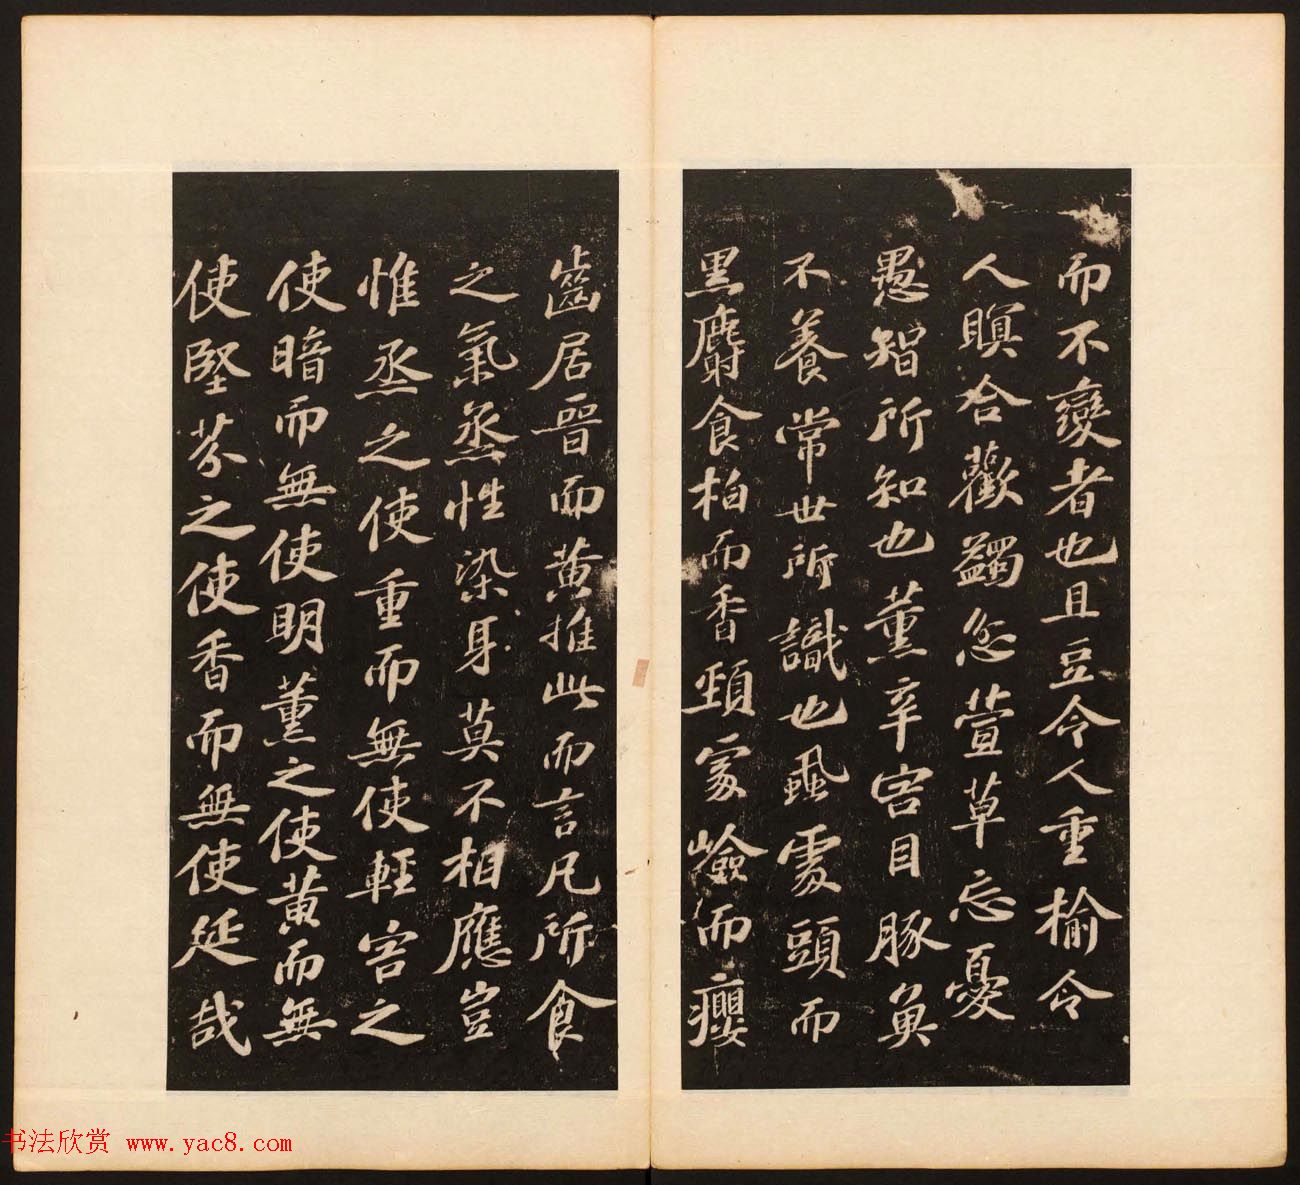 而不變者也且豆令人重榆令
人瞑合歡蠲忿萱草忘憂
愚智所知也薰辛害目豚魚
不養常世所識也虱處頭而
黑麝食柏而香頸處嶮而癭
齒居晉而黃推此而言凡所食
之氣蒸性染身莫不相應豈
惟烝之使重而無使輕害之
使暗而無使明薰之使黃而無
使堅芬之使香而無使延哉
书法欣赏 www.yac8.com